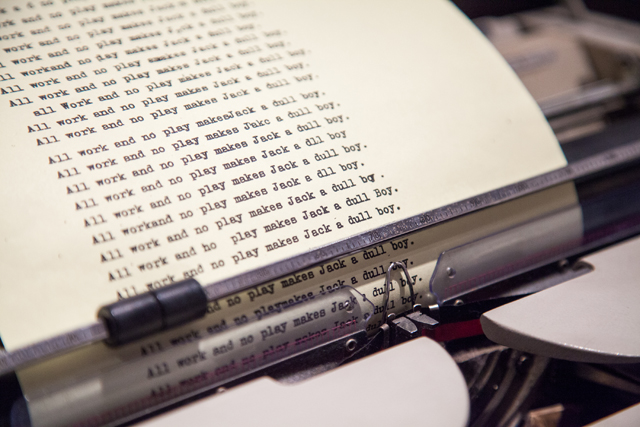 work and no play makes Jack a dull boy.
work and no play makes Jack a dull boy.
All workand no play makes Jack a dull boy.
All work and no play makes Jack a dull boy.
all Work and no play makes Jack a dull boy.
All work and no play makes Jack a dull boy.
All work and no play makesJack a dull boy.
All work and no play makes Jakc a dull boy.
All work and no play makes Jack a dull boy.
All work and no play makes Jack a dll boy
All work and no play makes Jack a dull boy.
All workand no play makes Jack a dll boy .
All work and no play makes Jack a dull by.
All work and ho play makes Jack a dull Boy.
All work and no play makes Jack a dull boy.
and no play makes Jack a dull boy.
and no playmakes Jack a dull
All work and no play makes Jack dull boy.
All work and no play makes Jack